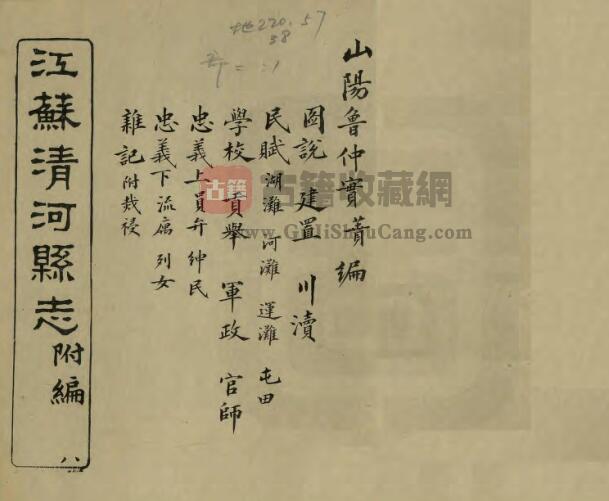 地220.57
38
山陽魯仲實蕡編
圖說 建置 川瀆
民賦 湖灘 河灘 運灘 屯田
學校 貢舉 軍政 官師
忠義上 員弁 紳民
忠義下 流寓 列女
雜記 附烖祲
江蘇清河縣志 附編
八
古籍 古籍收藏網
www.GuJiShuCang.com